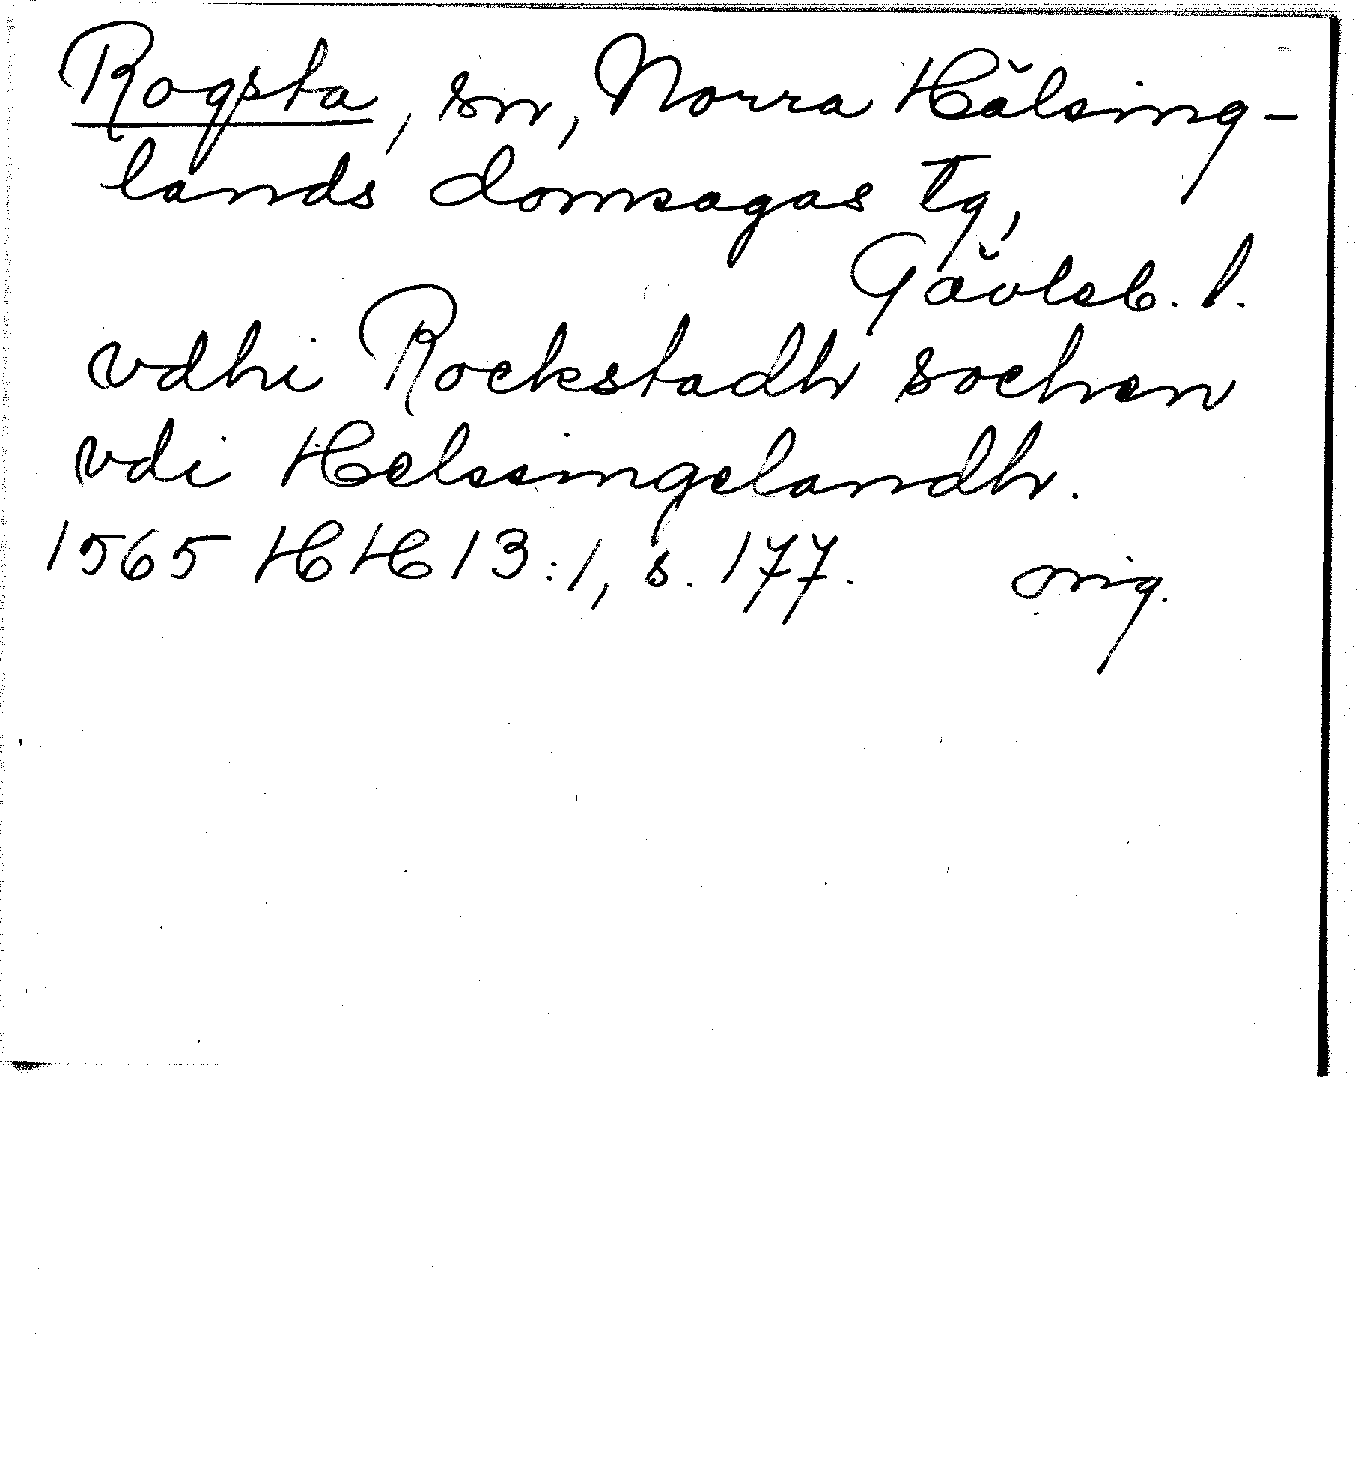 Rogsta, sn, Norra Hälsing-
lands domsagas tg,
Gävleb. l.
vdhi Rockstadh sochen
vdi Helssingelandh.
1565 HH 13:1, s. 177. orig.